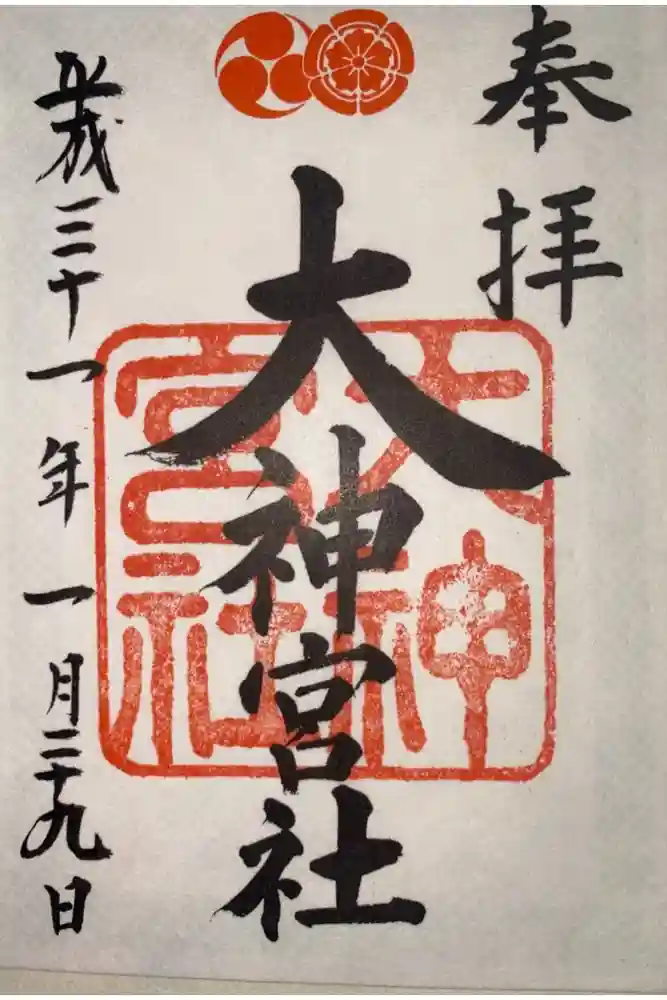 奉拝
大神宮社
大神宮社
平成三十一年一月二十九日